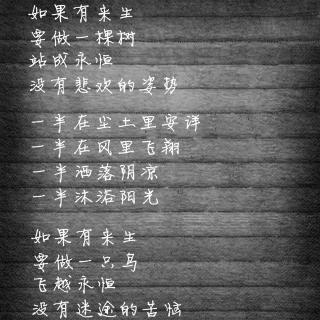 如果有来生
要做一棵树
站成永恒
没有悲欢的姿势
一半在尘土里安详
一半在风里飞翔
一半洒落阴凉
一半沐浴阳光
如果有来生
要做一只鸟
飞越永恒
没有迷途的苦恼